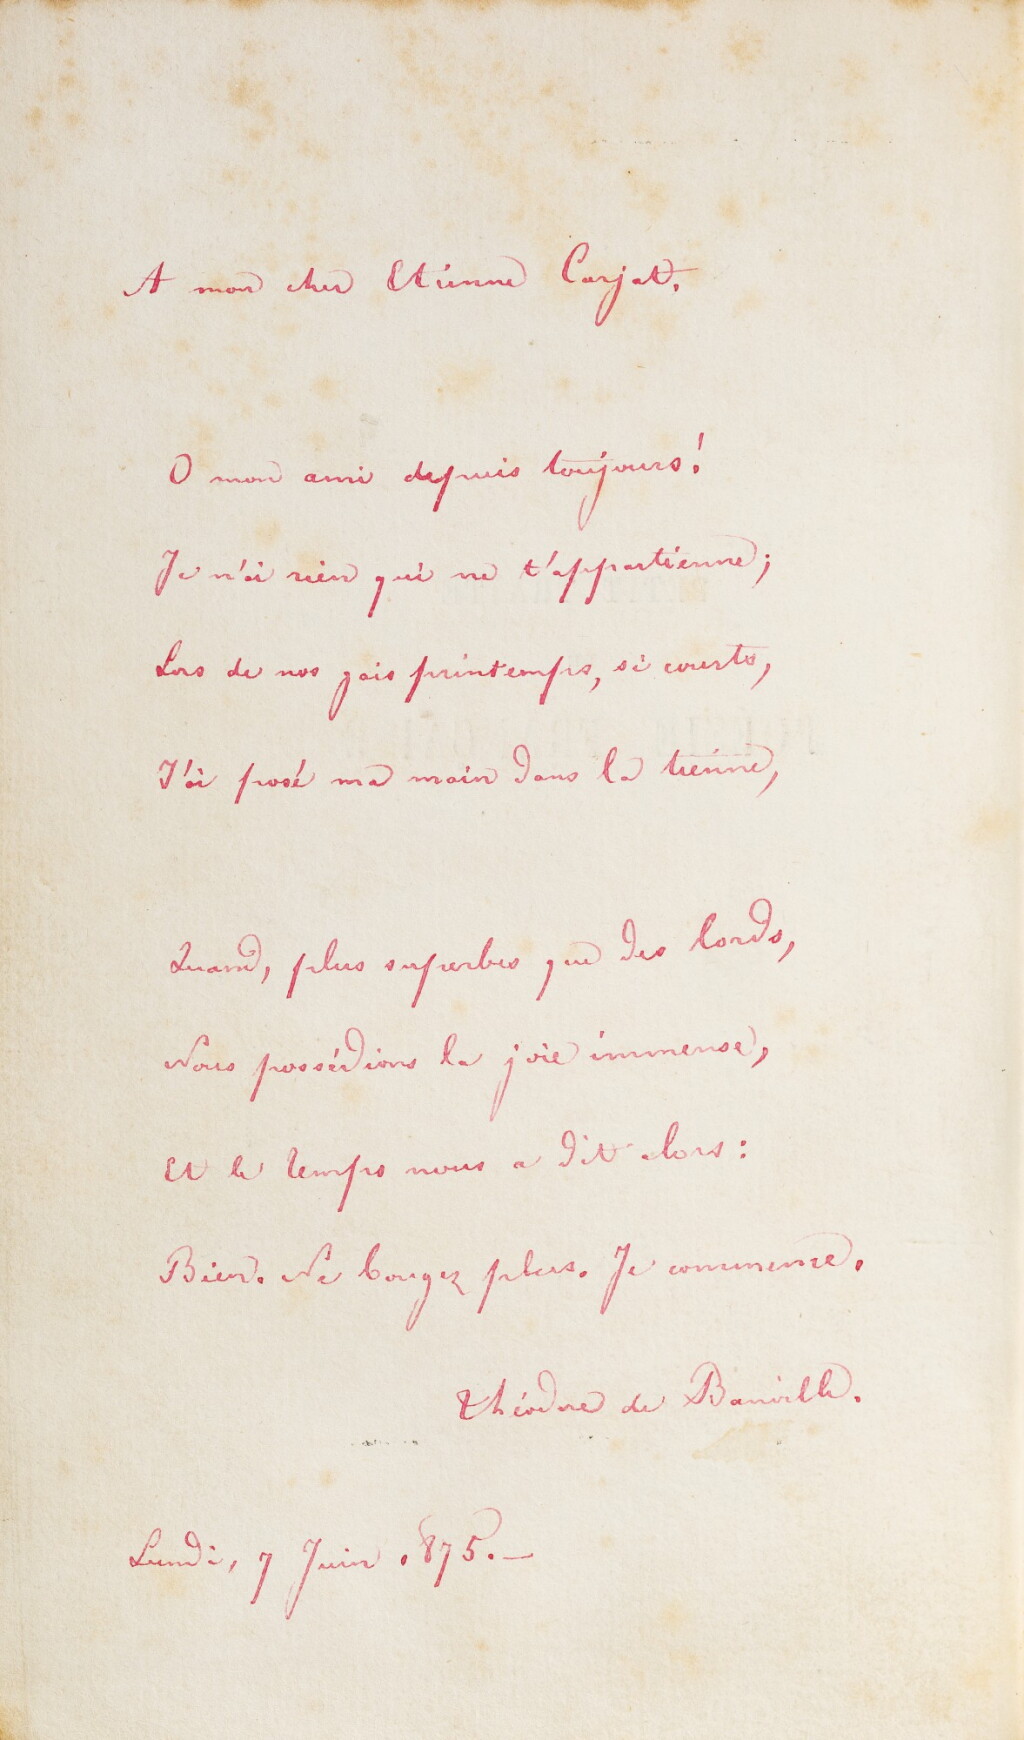 A mon cher Etienne Carjat.
O mon ami depuis toujours!
Je n'ai rien qui ne t'appartienne;
Lors de nos gais printemps, si courts,
J'ai posé ma main dans la tienne,
Quand, plus superbes que des lords,
Nous possédions la joie immense,
Et le Temps nous a dit alors:
Bien. Ne bougez plus. Je commence.
Théodore de Banville.
Lundi, 7 Juin 1875.—